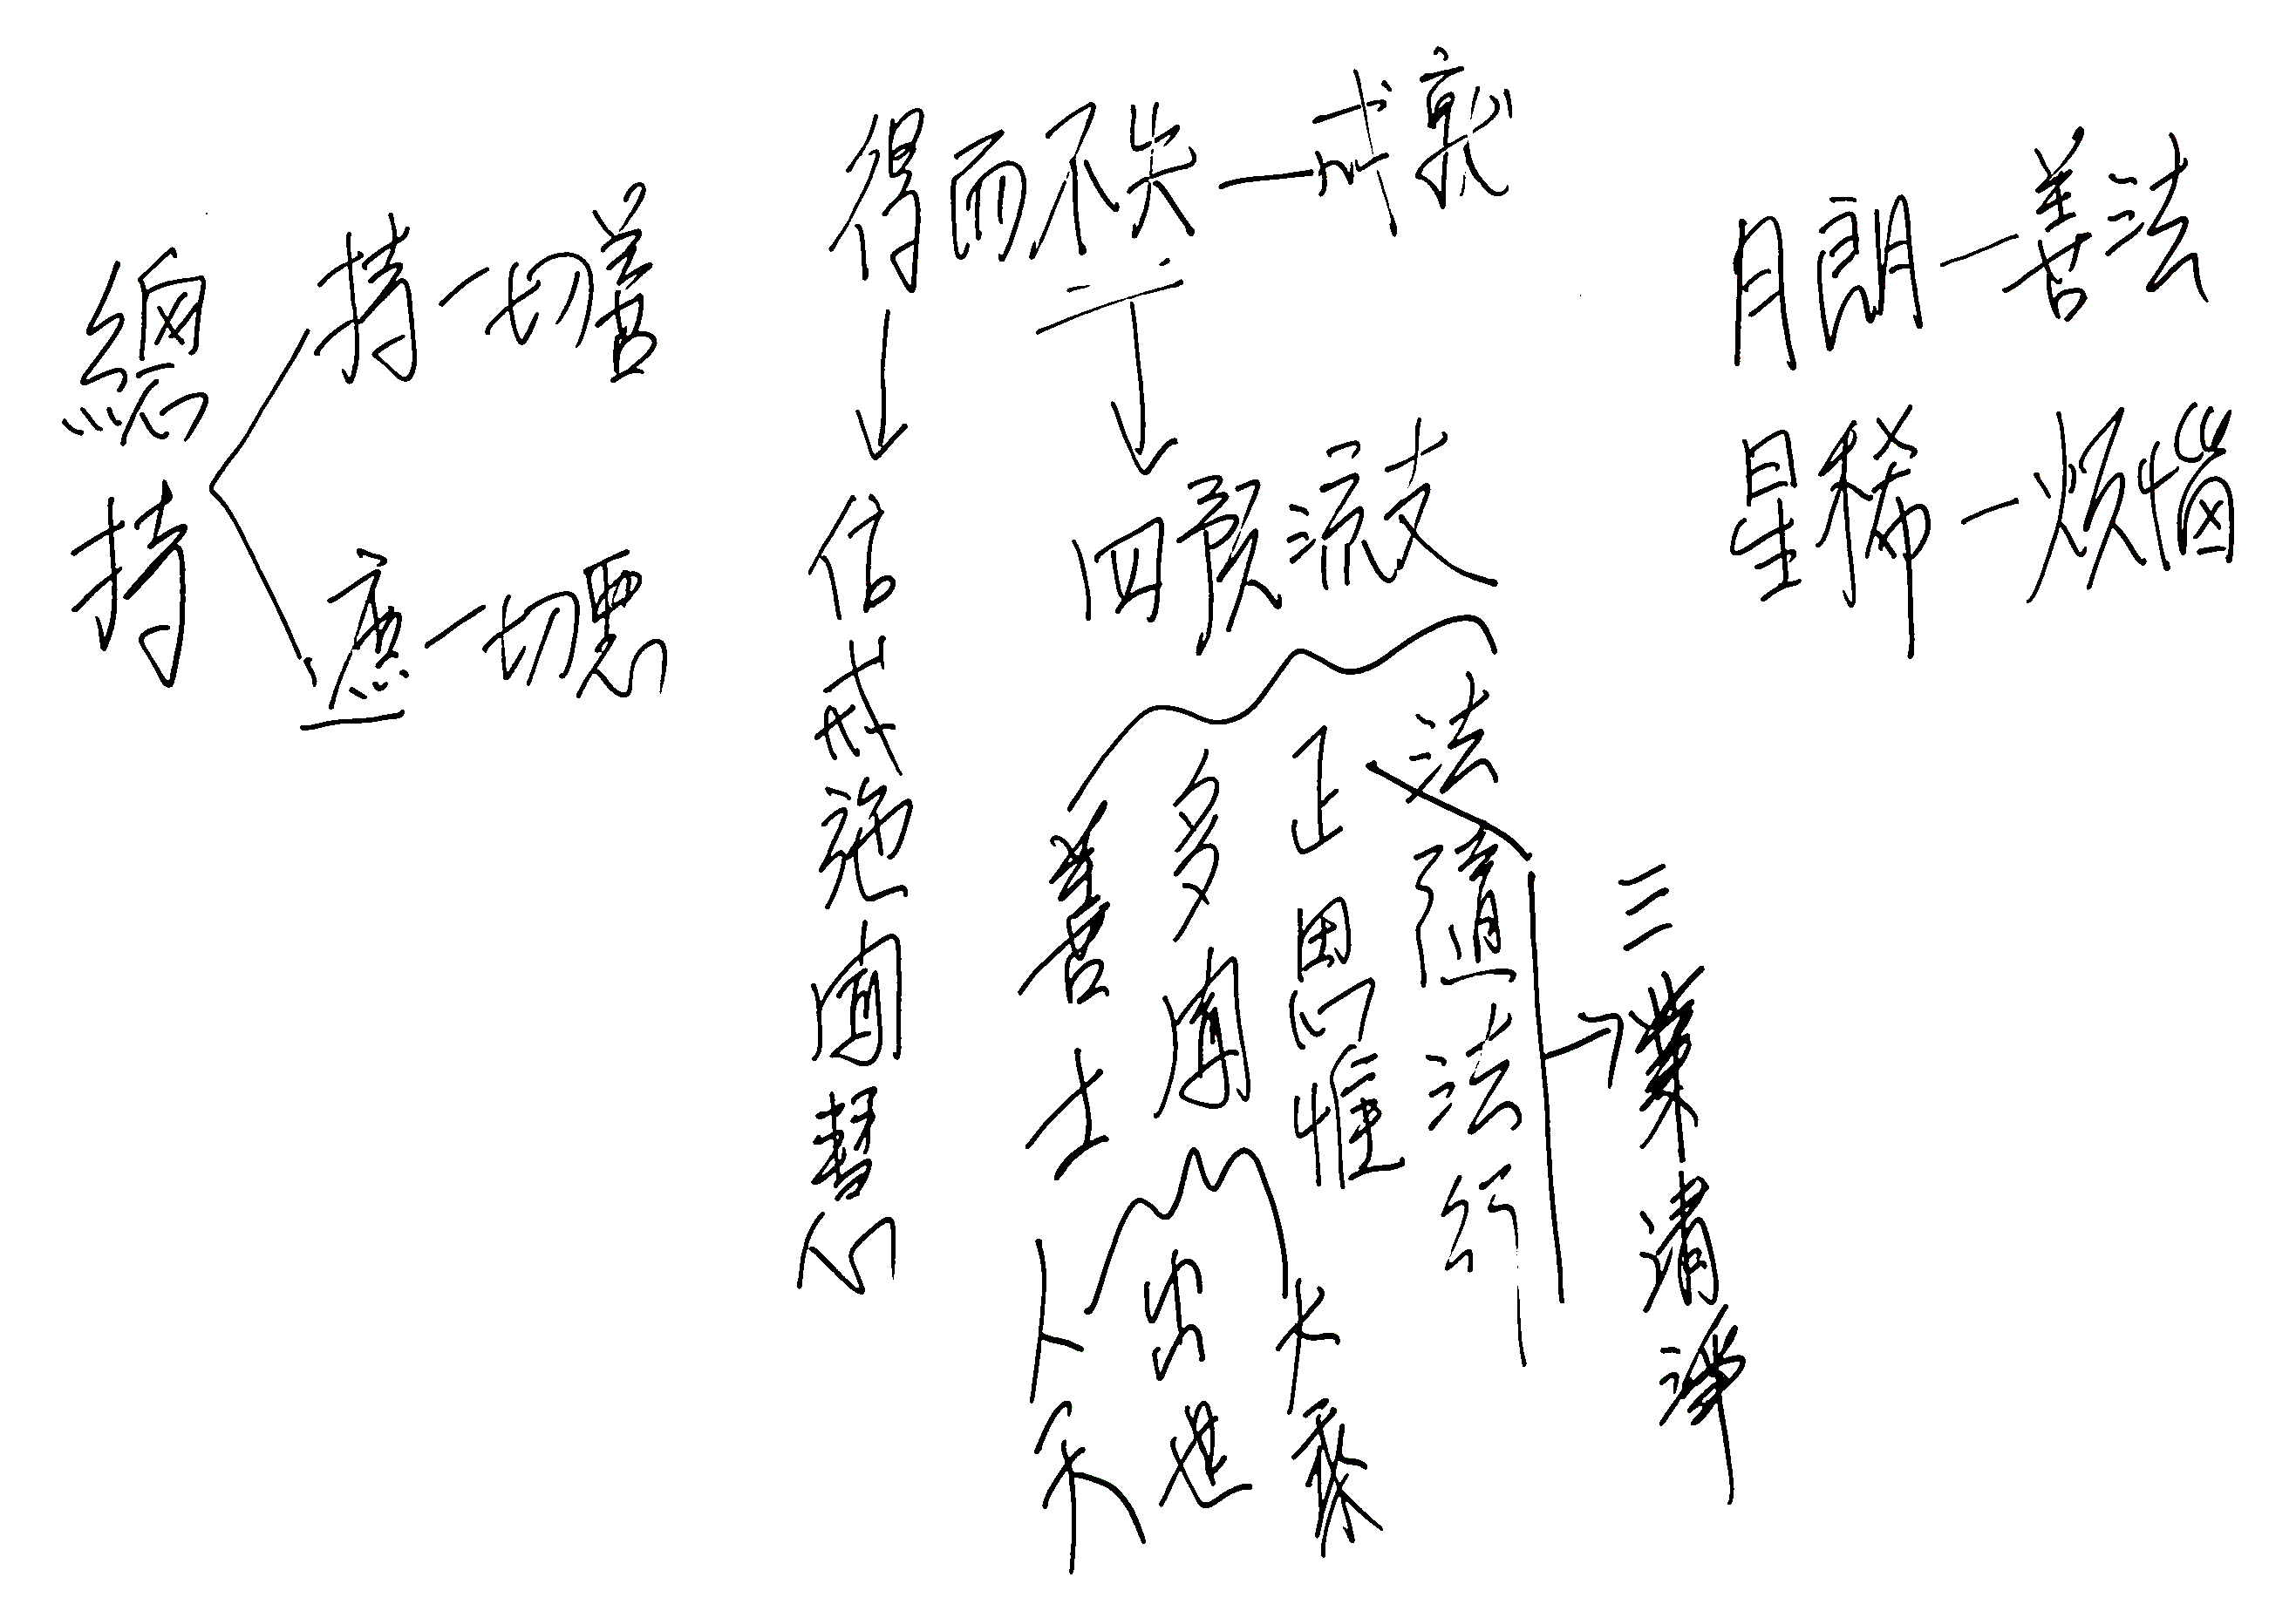 總持
持一切善
遮一切惡
得而不失—成就
信戒施聞慧
四預流支
善士
多聞
正思惟
法隨法行
人天
出世
大乘
三業清淨
月朗—善法
星稀—煩惱